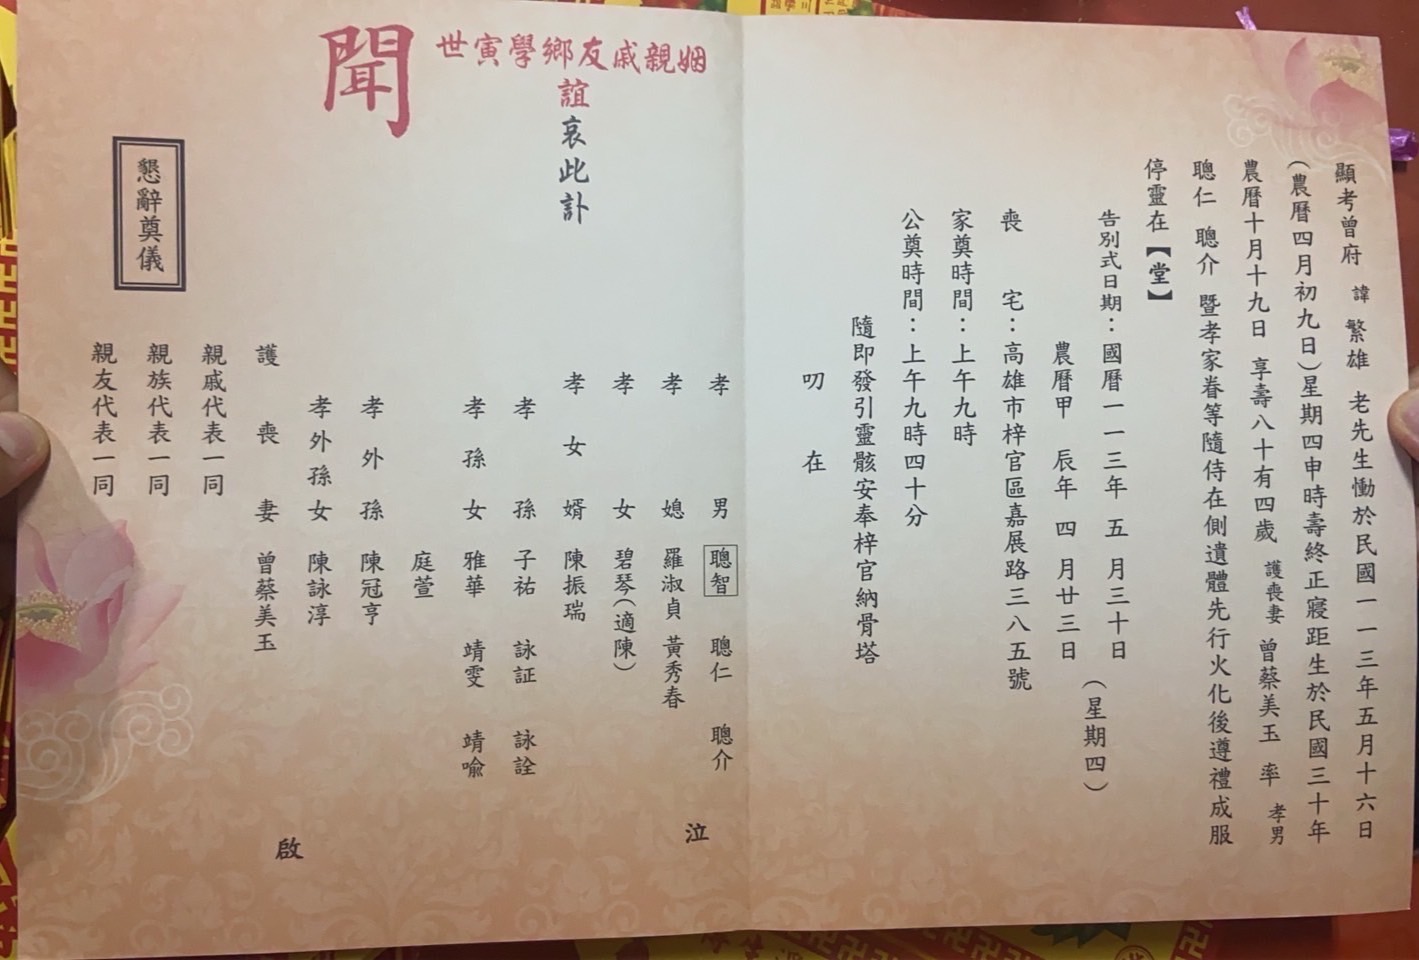 顯考曾府 諱 繁雄 老先生慟於民國一一三年五月十六日
(農曆四月初九日)星期四申時壽終正寢距生於民國三十年
農曆十月十九日 享壽八十有四歲 護喪妻 曾蔡美玉 率 孝男
聰仁 聰介 暨孝家眷等隨侍在側遺體先行火化後遵禮成服
停靈在【堂】
告別式日期：國曆一一三年 五 月三十日 (星期四)
農曆甲 辰年 四 月廿三日
喪 宅：高雄市梓官區嘉展路三八五號
家奠時間：上午九時
公奠時間：上午九時四十分
隨即發引靈骸安奉梓官納骨塔
叨 在
姻親戚友鄉學寅世
誼哀此訃
聞
孝 男 聰智 聰仁 聰介
孝 媳 羅淑貞 黃秀春
孝 女 碧琴(適陳)
孝 女 婿 陳振瑞
孝 孫 子祐 詠証 詠詮
孝 孫 女 雅華 靖雯 靖喻
庭萱
孝 外 孫 陳冠亨
孝 外 孫 女 陳詠淳
護 喪 妻 曾蔡美玉
泣
啟
親戚代表一同
親族代表一同
親友代表一同
懇辭奠儀